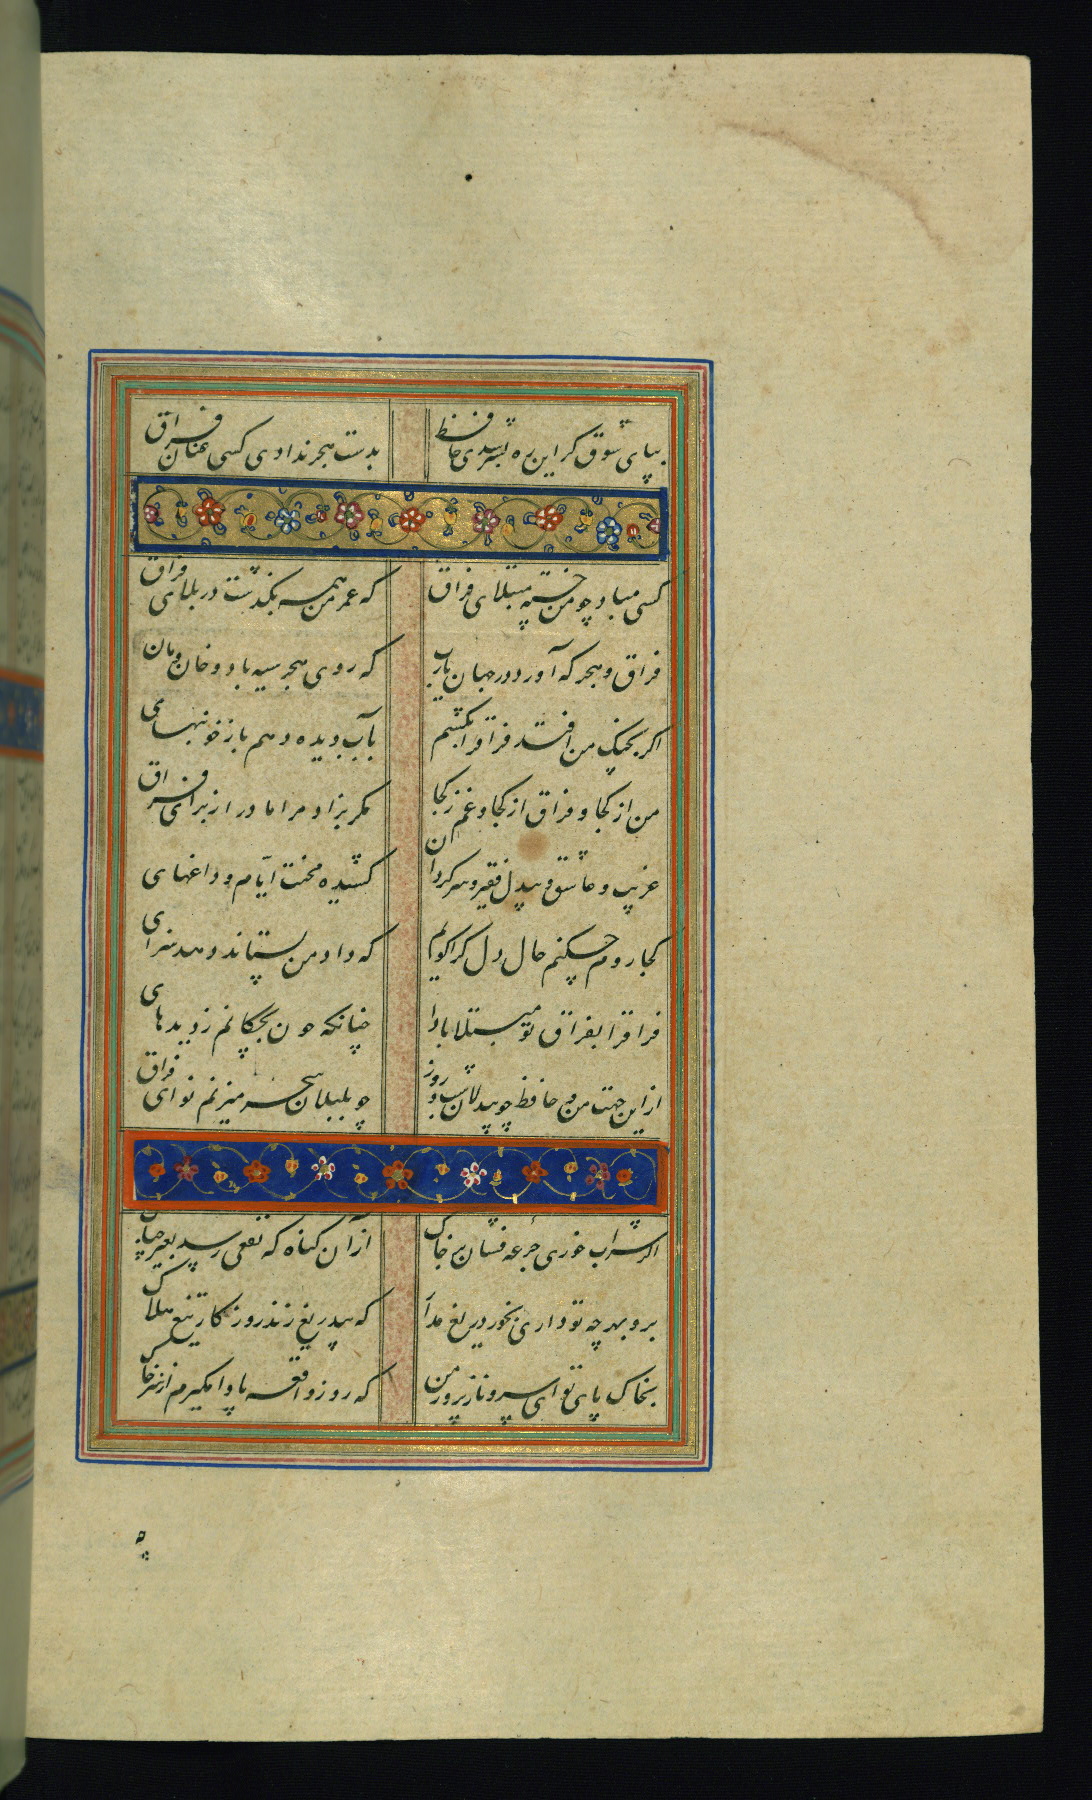 بپای شوق کر این ره بسر شدی حافظ
بدست هجر ندادی کسی عنان فراق
کسی مباد چو من خسته مبتلای فراق
که عمر من همه بگذشت در بلای فراق
فراق و هجر که آورد در جهان یارب
که روی هجر سیه باد و خان و مان
اکر بچنک من افتد فراق را بکشم
بآب دیده دهم باز خونبهای
من از کجا و فراق از کجا و غم ز کجا
مکر بزاد مرا مادر از برای فراق
غریب و عاشق و بیدل فقیر و سرکردان
کشیده محنت ایام و داغهای
کجا روم چکنم حال دل کرا کویم
که داد من بستاند دهد سزای
فراق را بفراق تو مبتلا بادا
چنانکه خون بچکانم ز دیدهای
از این جهت من و حافظ چو بیدلان شب و روز
چو بلبلان سحر میزنم نوای فراق
اکر شراب خوری جرعه فشان بر خاک
از آن کناه که نفعی رسد بغیر چه باک
برو بهر چه تو داری بخور دریغ مدار
که بیدریغ زند روزکار تیغ هلاک
بخاک پای تو ای سرو نازپرور من
که روز واقعه پا وامکیرم از سر خاک
چه